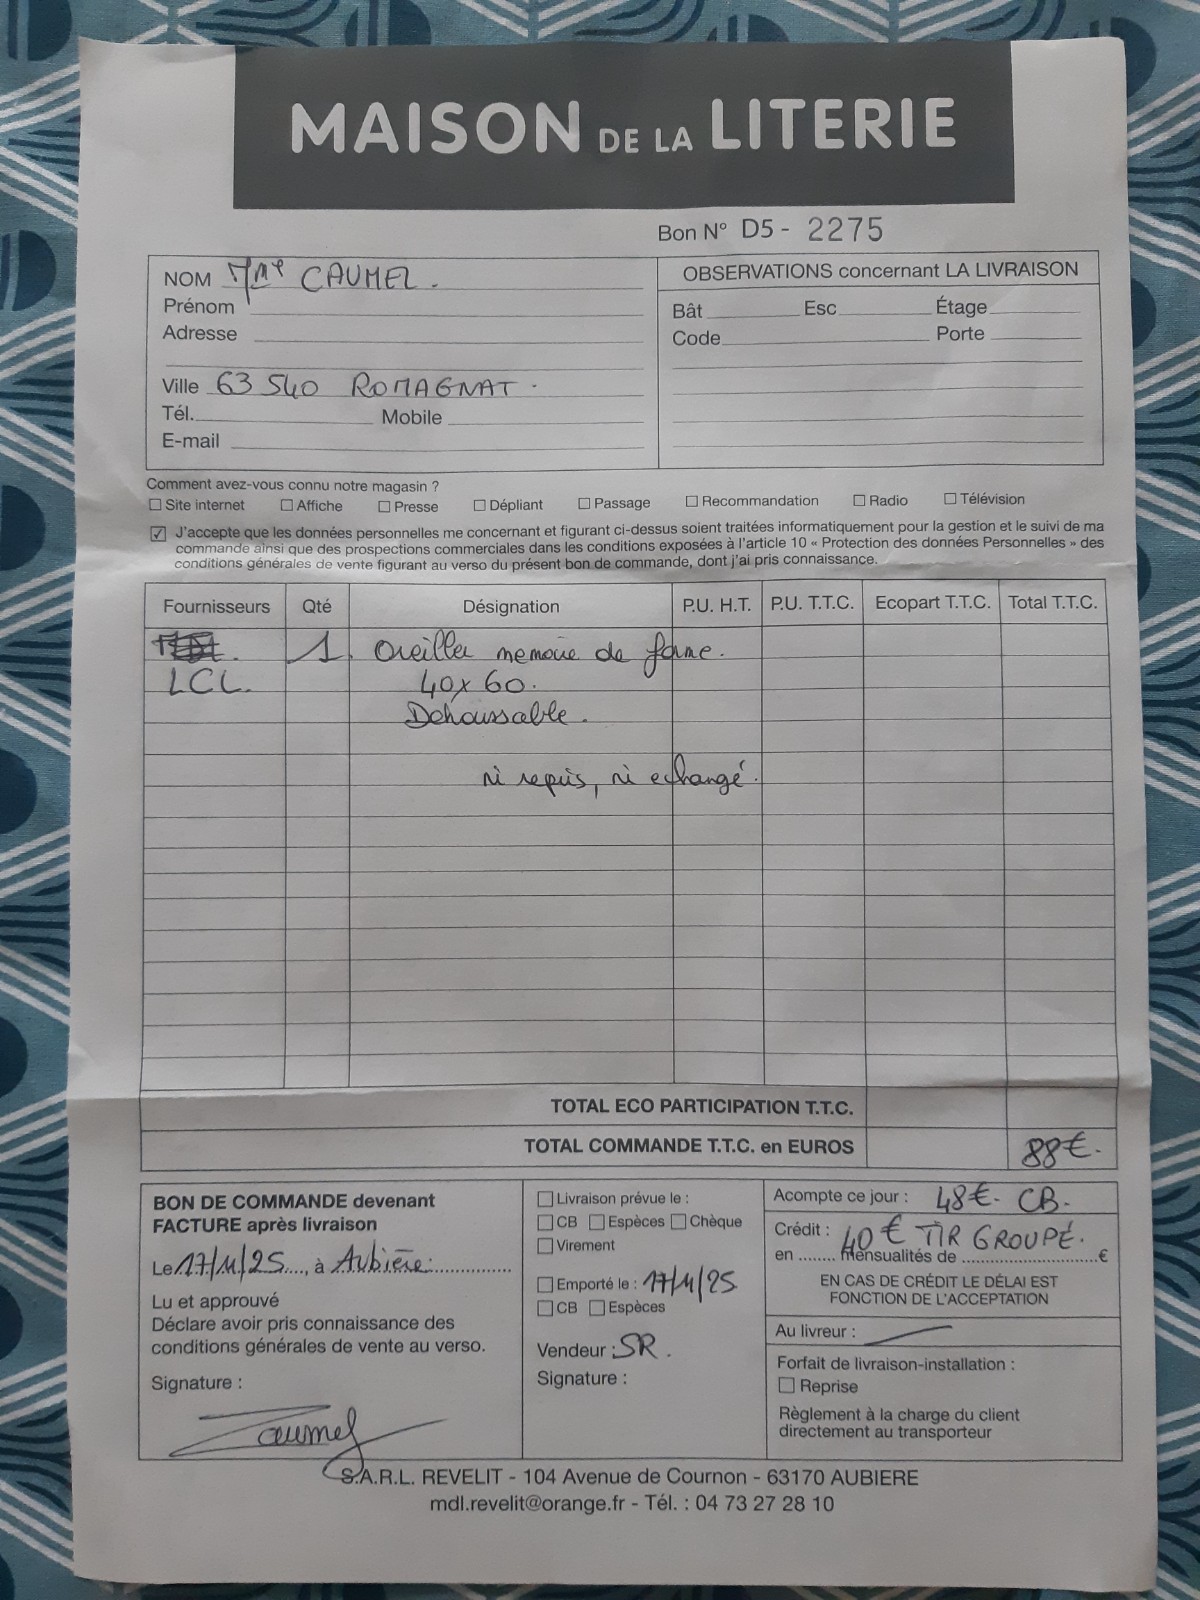 MAISON DE LA LITERIE
Bon N° D5 - 2275
NOM Mme CAUMEL.
Prénom
Adresse
Ville 63 540 ROMAGNAT.
Tél. Mobile
E-mail
OBSERVATIONS concernant LA LIVRAISON
Bât Esc Étage
Code Porte
Comment avez-vous connu notre magasin ?
Site internet Affiche Presse Dépliant Passage Recommandation Radio Télévision
J'accepte que les données personnelles me concernant et figurant ci-dessus soient traitées informatiquement pour la gestion et le suivi de ma
commande ainsi que des prospections commerciales dans les conditions exposées à l'article 10 « Protection des données Personnelles » des
conditions générales de vente figurant au verso du présent bon de commande, dont j'ai pris connaissance.
Fournisseurs Qté Désignation P.U. H.T. P.U. T.T.C. Ecopart T.T.C. Total T.T.C.
1 Oreiller memoire de forme.
LCL. 40x60.
Dehoussable.
ni repris, ni echangé.
TOTAL ECO PARTICIPATION T.T.C.
TOTAL COMMANDE T.T.C. en EUROS 88€.
BON DE COMMANDE devenant
FACTURE après livraison
Le 17/11/25, à Aubière.
Lu et approuvé
Déclare avoir pris connaissance des
conditions générales de vente au verso.
Signature :
Caumel
Livraison prévue le :
CB Espèces Chèque
Virement
Emporté le : 17/11/25
CB Espèces
Vendeur : SR.
Signature :
Acompte ce jour : 48€. CB.
Crédit : 40€ TIR GROUPÉ.
en ........ mensualités de ............................€
EN CAS DE CRÉDIT LE DÉLAI EST
FONCTION DE L'ACCEPTATION
Au livreur :
Forfait de livraison-installation :
Reprise
Règlement à la charge du client
directement au transporteur
S.A.R.L. REVELIT - 104 Avenue de Cournon - 63170 AUBIERE
mdl.revelit@orange.fr - Tél. : 04 73 27 28 10